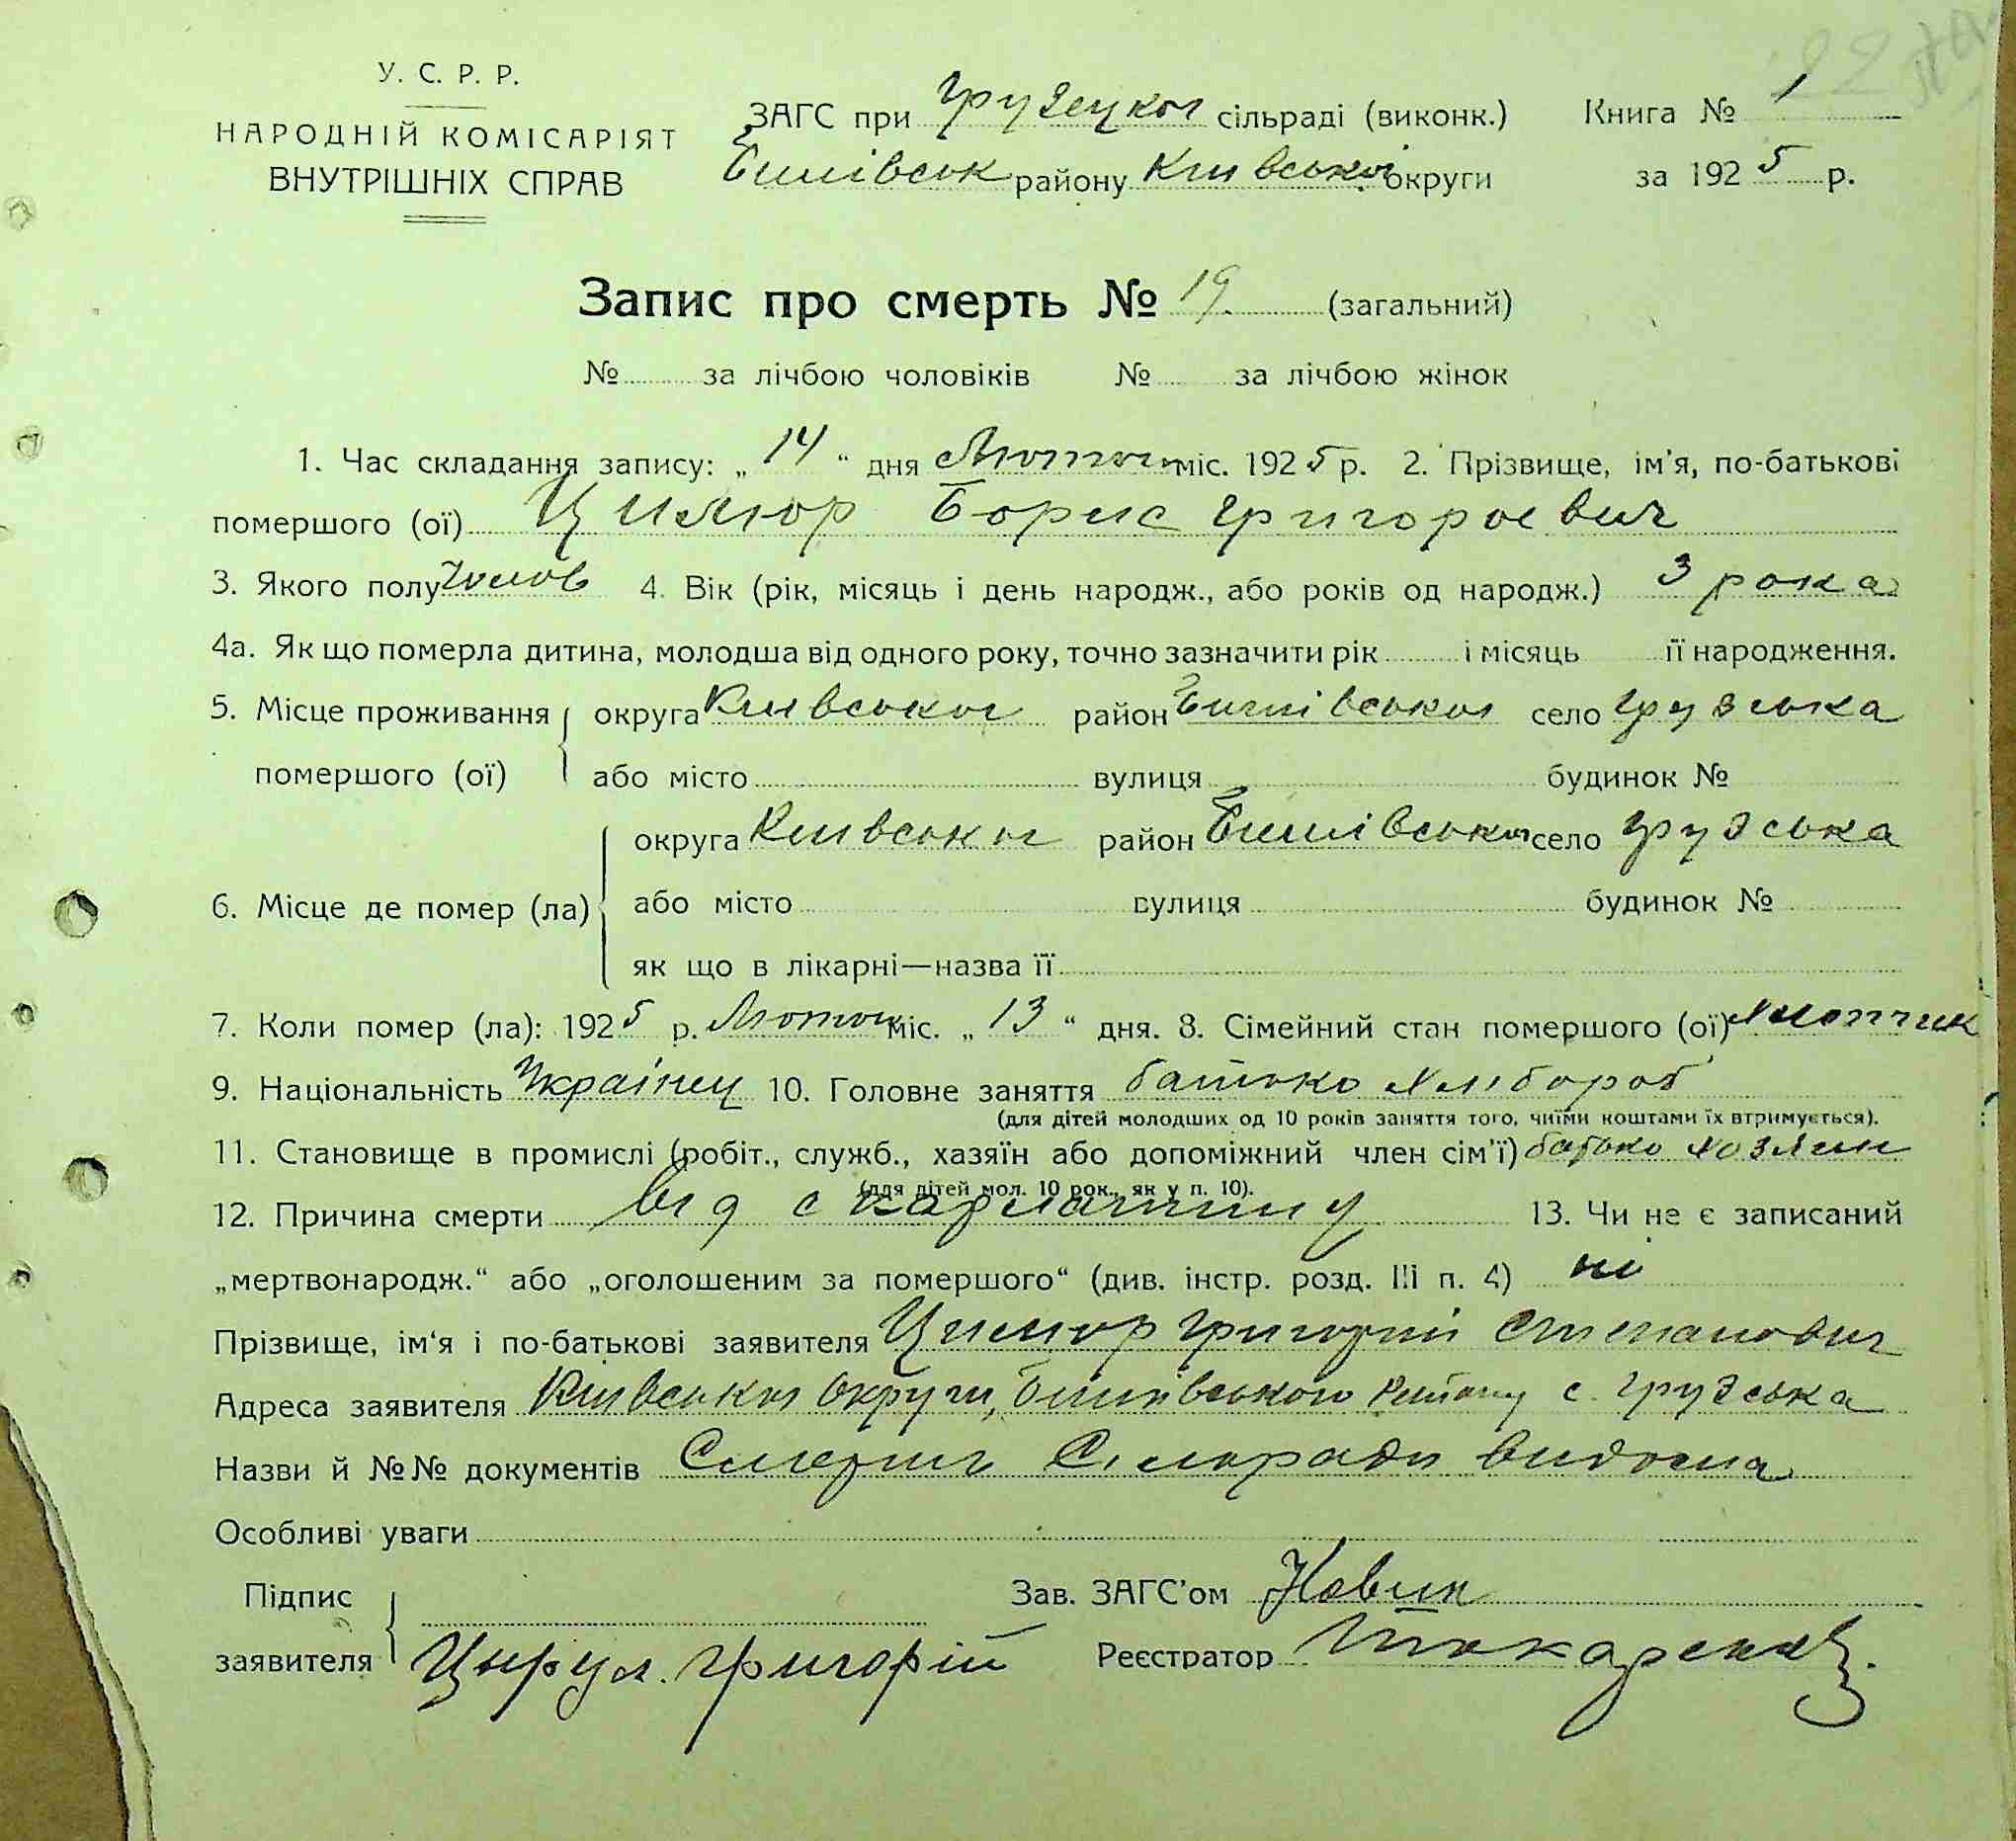 У. С. Р. Р.
НАРОДНІЙ КОМІСАРІЯТ
ВНУТРІШНІХ СПРАВ
ЗАГС при Грузецкої сільраді (виконк.) Книга № 1
Бишівськ району Київської округи за 1925 р.
Запис про смерть № 19. (загальний)
№ за лічбою чоловіків № за лічбою жінок
1. Час складання запису: „14“ дня Лютого міс. 1925 р. 2. Прізвище, ім'я, по-батькові
помершого (ої) Борис Григорович
3. Якого полу Чолов 4. Вік (рік, місяць і день народж., або років од народж.) 3 рока
4а. Як що померла дитина, молодша від одного року, точно зазначити рік і місяць її народження.
5. Місце проживання округа Київської район Бишівської село Грузська
помершого (ої) або місто вулиця будинок №
округа Київської район Бишівської село Грузська
6. Місце де помер (ла) або місто вулиця будинок №
як що в лікарні—назва її
7. Коли помер (ла): 1925 р. Лютого міс. „13“ дня. 8. Сімейний стан помершого (ої) Хлопчик
9. Національність Українец 10. Головне заняття батько Хлібороб
(для дітей молодших од 10 років заняття того, чиїми коштами їх втримується).
11. Становище в промислі (робіт., служб., хазяїн або допоміжний член сім'ї) батько хозяин
(для дітей мол. 10 рок., як у п. 10).
12. Причина смерти від скарлатини 13. Чи не є записаний
„мертвонародж.“ або „оголошеним за помершого“ (див. інстр. розд. III п. 4) ні
Прізвище, ім'я і по-батькові заявителя Григорій Степанович
Адреса заявителя Київської округи, Бишівського району с. Грузська
Назви й №№ документів Сільради видома
Особливі уваги
Підпис Зав. ЗАГС'ом Новик
заявителя Григорій Реєстратор Токаренко